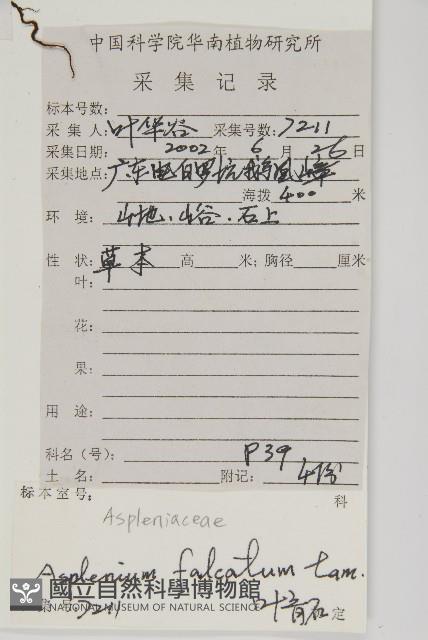 中国科学院华南植物研究所
采集记录
标本号数:
采集人: 叶华谷 采集号数: 7211
采集日期: 2002年 6月 26日
采集地点: 广东电白罗坑鹅凰嶂
海拨 400 米
环境: 山地、山谷.石上
性状: 草本 高 米; 胸径 厘米
叶:
花:
果:
用途:
科名(号): P39
土名: 附记: 4份
标本室号: 科
Aspleniaceae
Asplenium falcatum Lam.
7211 叶育石 定
國立自然科學博物館
NATIONAL MUSEUM OF NATURAL SCIENCE